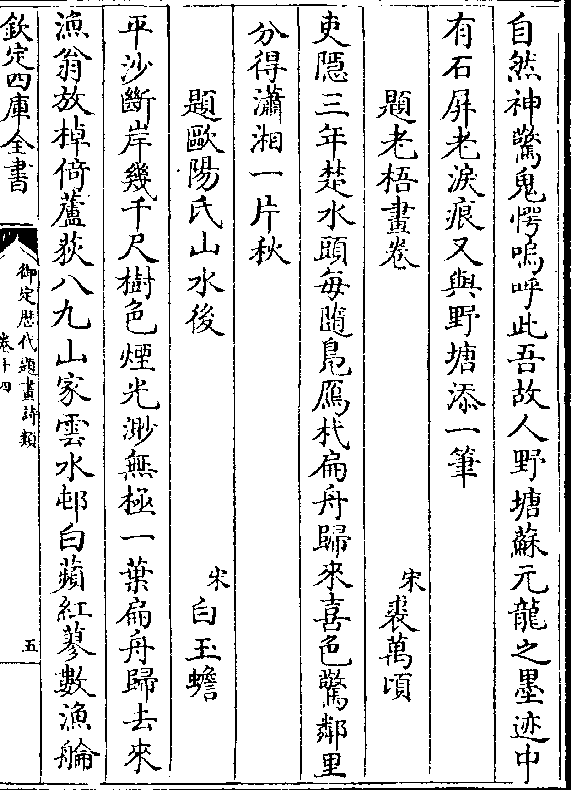 自然神驚鬼愕嗚呼此吾故人野塘蘇元龍之墨迹中
有石屏老淚痕又與野塘添一筆
題老梧畫卷 宋裘萬頃
吏隱三年楚水頭每隨鳧鴈杙扁舟歸來喜色驚鄰里
分得瀟湘一片秋
題歐陽氏山水後 宋白玉蟾
平沙斷岸幾千尺樹色煙光渺無極一葉扁舟歸去來
漁翁放棹倚蘆荻八九山家雲水邨白蘋紅蓼數漁艑
欽定四庫全書
御定歴代題畫詩類
卷十四
五